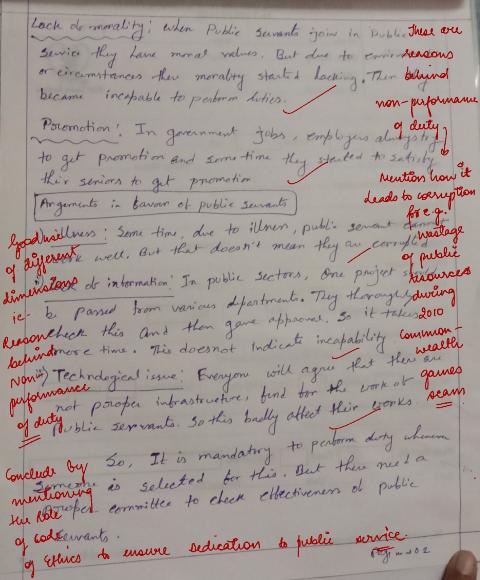 Lack of morality: when Public servants join in Public
service they have moral values. But due to
or circumstances their morality started lacking. Then
became incapable to perform duties.
Poromotion: In government jobs, employers always try
to get promotion and some time they started to satisfy
their seniors to get promotion
Arguments in favour of public servants
illness: Some time, due to illness, public servant cannot
work well. But that doesn't mean they are corrupted
Lack of information: In public sectors, One project
be passed from various dpartments. They thoroughly
check this and then gave approval. So it takes
more time. This doesnot indicate incapability
iii) Technological issue: Everyone will agree that there are
not poroper infrastructure, fund for the work of
public servants. So this badly affect their works.
So, It is mandatory to perform duty whenever
someone is selected for this. But there need a
poroper committee to check effectiveness of public
servants.
These are
reasons
behind
non-performance
of duty,
Mention how it
Leads to corruption
for e.g.
wastage
of public
resources
during
2010
common-
wealth
games
scam
Good use
of different
dimensions
ie-
Reason
behind
non-
performance
of duty
Conclude by
mentioning
the Role
of code
of Ethics to ensure dedication to public service.